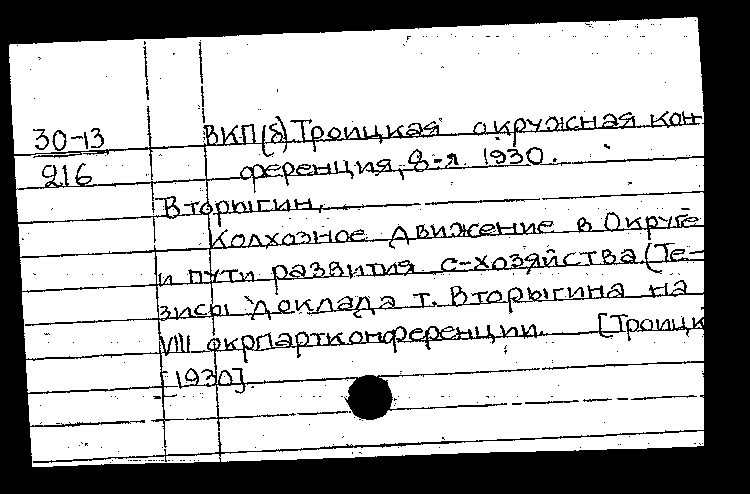 30-13
216
ВКП(б). Троицкая окружная кон-
ференция, 8-я. 1930.
Вторыгин,
Колхозное движение в Округе
и пути развития с-хозяйства. (Те-
зисы доклада т. Вторыгина на
VIII окрпартконференции. [Троицк
[1930].